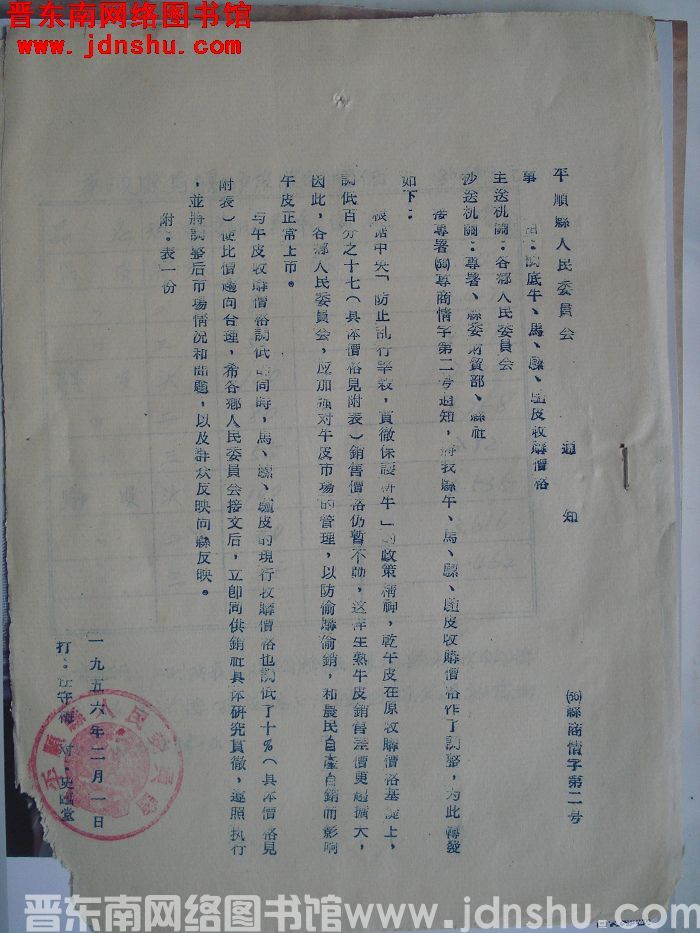 晋东南网络图书馆
www.jdnshu.com
平順縣人民委員会 通知
(56)縣商情字第二号
事由：調底牛、馬、騾、驢皮收購價格
主送机關：各鄉人民委員会
抄送机關：專署、縣委財貿部、縣社
接專署(56)專商情字第二号通知，將我縣牛、馬、騾、驢皮收購價格作了調整，为此轉發
如下：
根据中央「防止乱行宰殺，貫徹保護耕牛」的政策精神，乾牛皮在原收購價格基礎上，
調低百分之十七（具体價格見附表）銷售價格仍暫不動，这样生熟牛皮銷售差價更趨擴大，
因此，各鄉人民委員会，应加强对牛皮市場的管理，以防偷購偷銷，和農民自產自銷而影响
牛皮正常上市。
与牛皮收購價格調低的同時，馬、騾、驢皮的現行收購價格也調低了十％（具体價格見
附表）使比價趨向合理，希各鄉人民委員会接文后，立卽同供銷社具体研究貫徹，遵照执行
，並將調整后市場情况和問題，以及群众反映向縣反映。
附：表一份
一九五六年二月一日
打： 守 对：吳 堂
平順縣人民委員會
晋东南网络图书馆www.jdnshu.com